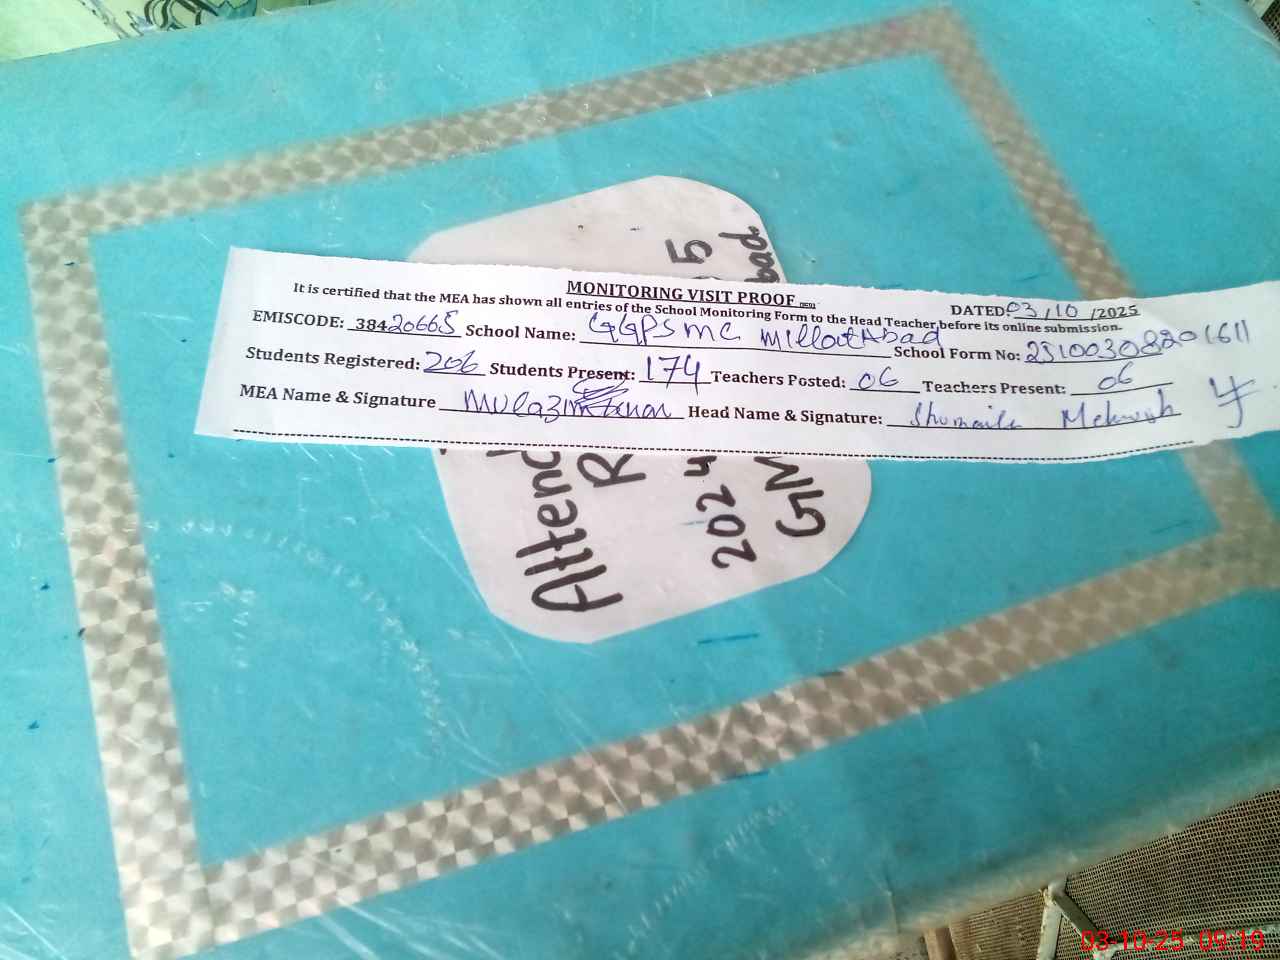 MONITORING VISIT PROOF
DATED: 03/10/2025
It is certified that the MEA has shown all entries of the School Monitoring Form to the Head Teacher, before its online submission.
EMISCODE: 38420665 School Name: GGPS MC MillatAbad School Form No:
Students Registered: 206 Students Present: 174 Teachers Posted: 06 Teachers Present: 06
MEA Name & Signature Mulazim Head Name & Signature: Shumaila Mehwish
Atten
R
202
GM
5
bad.
03-10-25 09:19